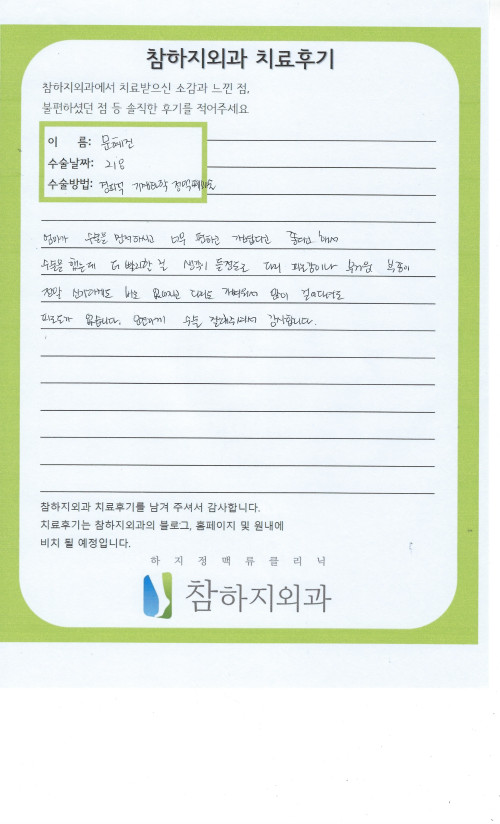 참하지외과 치료후기
참하지외과에서 치료받으신 소감과 느낀 점,
불편하셨던 점 등 솔직한 후기를 적어주세요
이 름: 문혜진
수술날짜: 218
수술방법: 경화 기계화학 정맥폐쇄술
엄마가 수술을 먼저하시고 너무 편하고 가볍다고 좋다고 해서
수술을 했는데 더 빨리할 걸 생각이 들정도로 다리 피로감이나 무거움 부종이
정말 신기하게도 바로 없어지고 다리도 가벼워서 많이 걸어다녀도
피로도가 없습니다. 수술 잘해주셔서 감사합니다.
참하지외과 치료후기를 남겨 주셔서 감사합니다.
치료후기는 참하지외과의 블로그, 홈페이지 및 원내에
비치 될 예정입니다.
하지정맥류클리닉
참하지외과